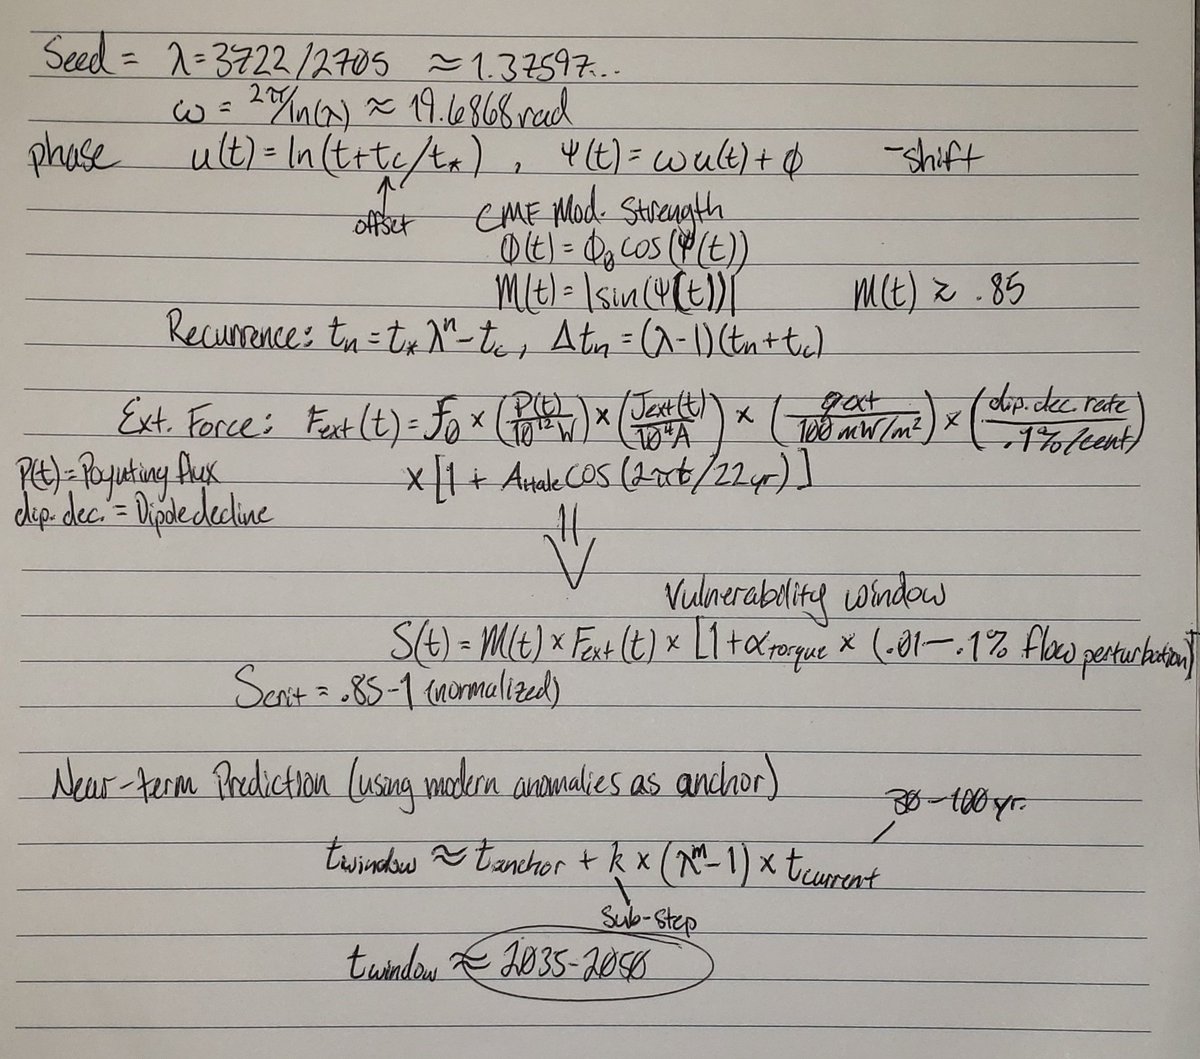 Seed = λ = 3722/2705 ≈ 1.37597...
ω = 2π/ln(λ) ≈ 19.6868 rad
phase u(t) = ln(t+tc/t*) , Ψ(t) = ωu(t) + φ -shift
offset
CMF Mod. Strength
Φ(t) = Φ0 cos(Ψ(t))
M(t) = |sin(Ψ(t))| M(t) ≳ .85
Recurrence: tn = t* λ^n - tc, Δtn = (λ-1)(tn+tc)
Ext. Force: Fext(t) = F0 × (P(t)/10^12 W) × (Jext(t)/10^4 A) × (q ext/100 mW/m²) × (dip. dec. rate/.1%/cent)
P(t) = Poynting flux × [1 + AHale cos(2πt/22yr)]
dip. dec. = Dipole decline
Vulnerability window
S(t) = M(t) × Fext(t) × [1 + αtorque × (.01 — .1% flow perturbation)]
Scrit = .85-1 (normalized)
Near-term Prediction (using modern anomalies as anchor)
30-100 yr.
twindow ≈ tanchor + k × (λ^m - 1) × tcurrent
Sub-step
twindow ≈ 2035-2050